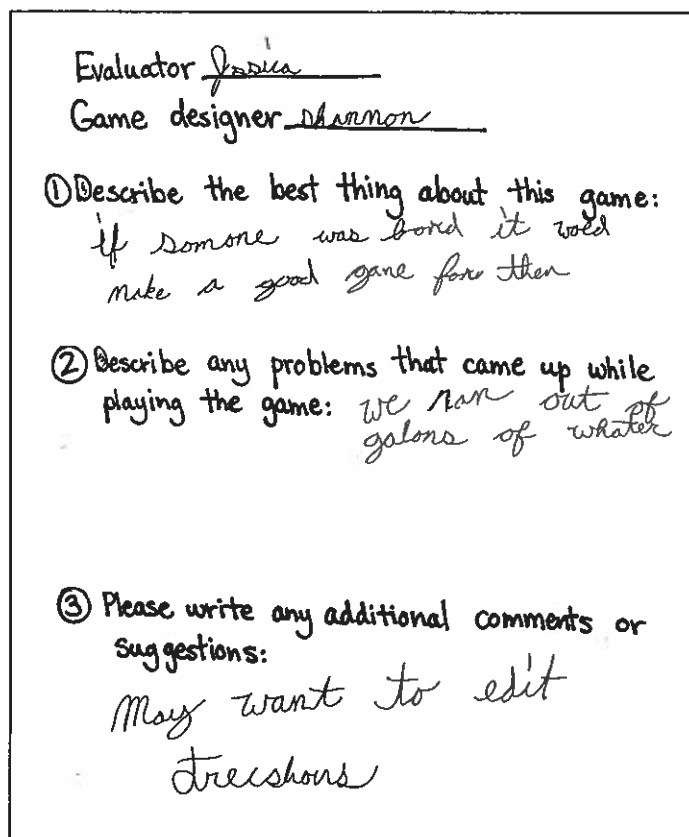 Evaluator Jssica
Game designer shannon
① Describe the best thing about this game:
if somone was bord it wold
make a good game for then
② Describe any problems that came up while
playing the game: we ran out of
galons of whater
③ Please write any additional comments or
suggestions:
May want to edit
direcshons